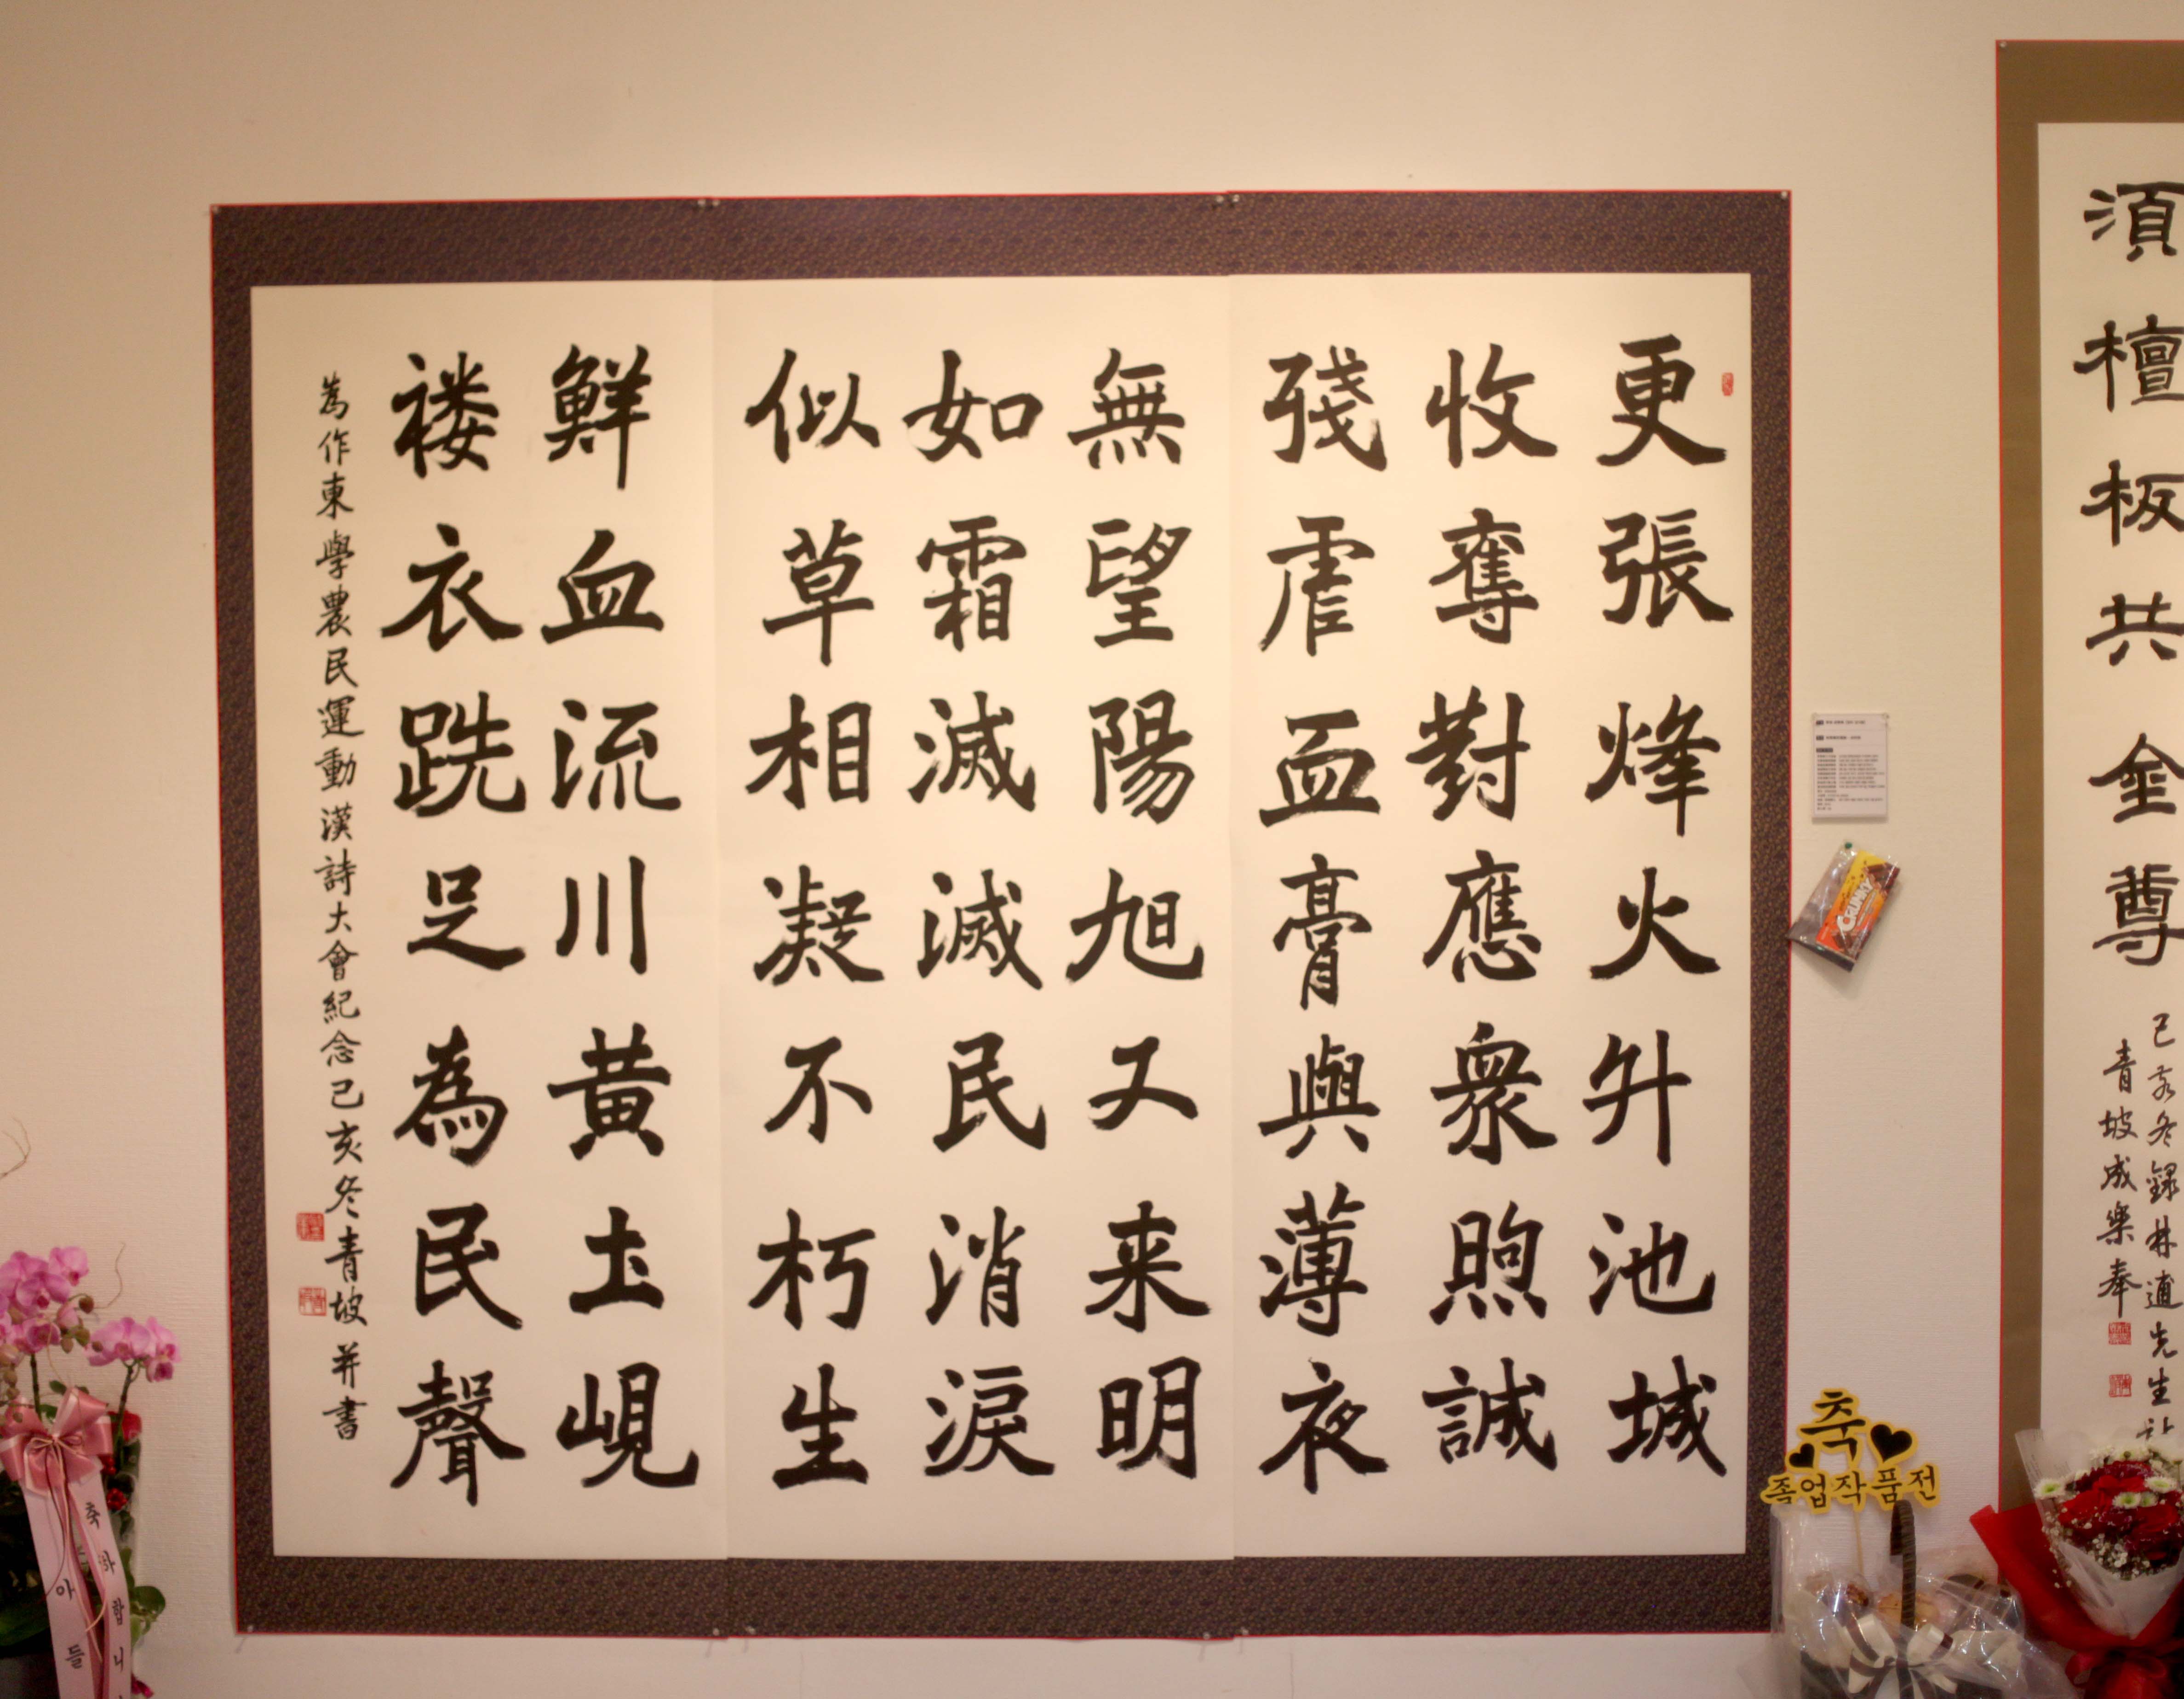 更張烽火升池城
收奪對應衆煦誠
殘虐血膏與薄夜
無望陽旭又来明
如霜滅滅民消淚
似草相凝不朽生
鮮血流川黃土峴
褸衣跣足為民聲
為作東學農民運動漢詩大會紀念己亥冬青坡并書
須檀板共金尊
己亥冬錄林逋先生
青坡成樂奉
축
졸업작품전
축하합니
아들